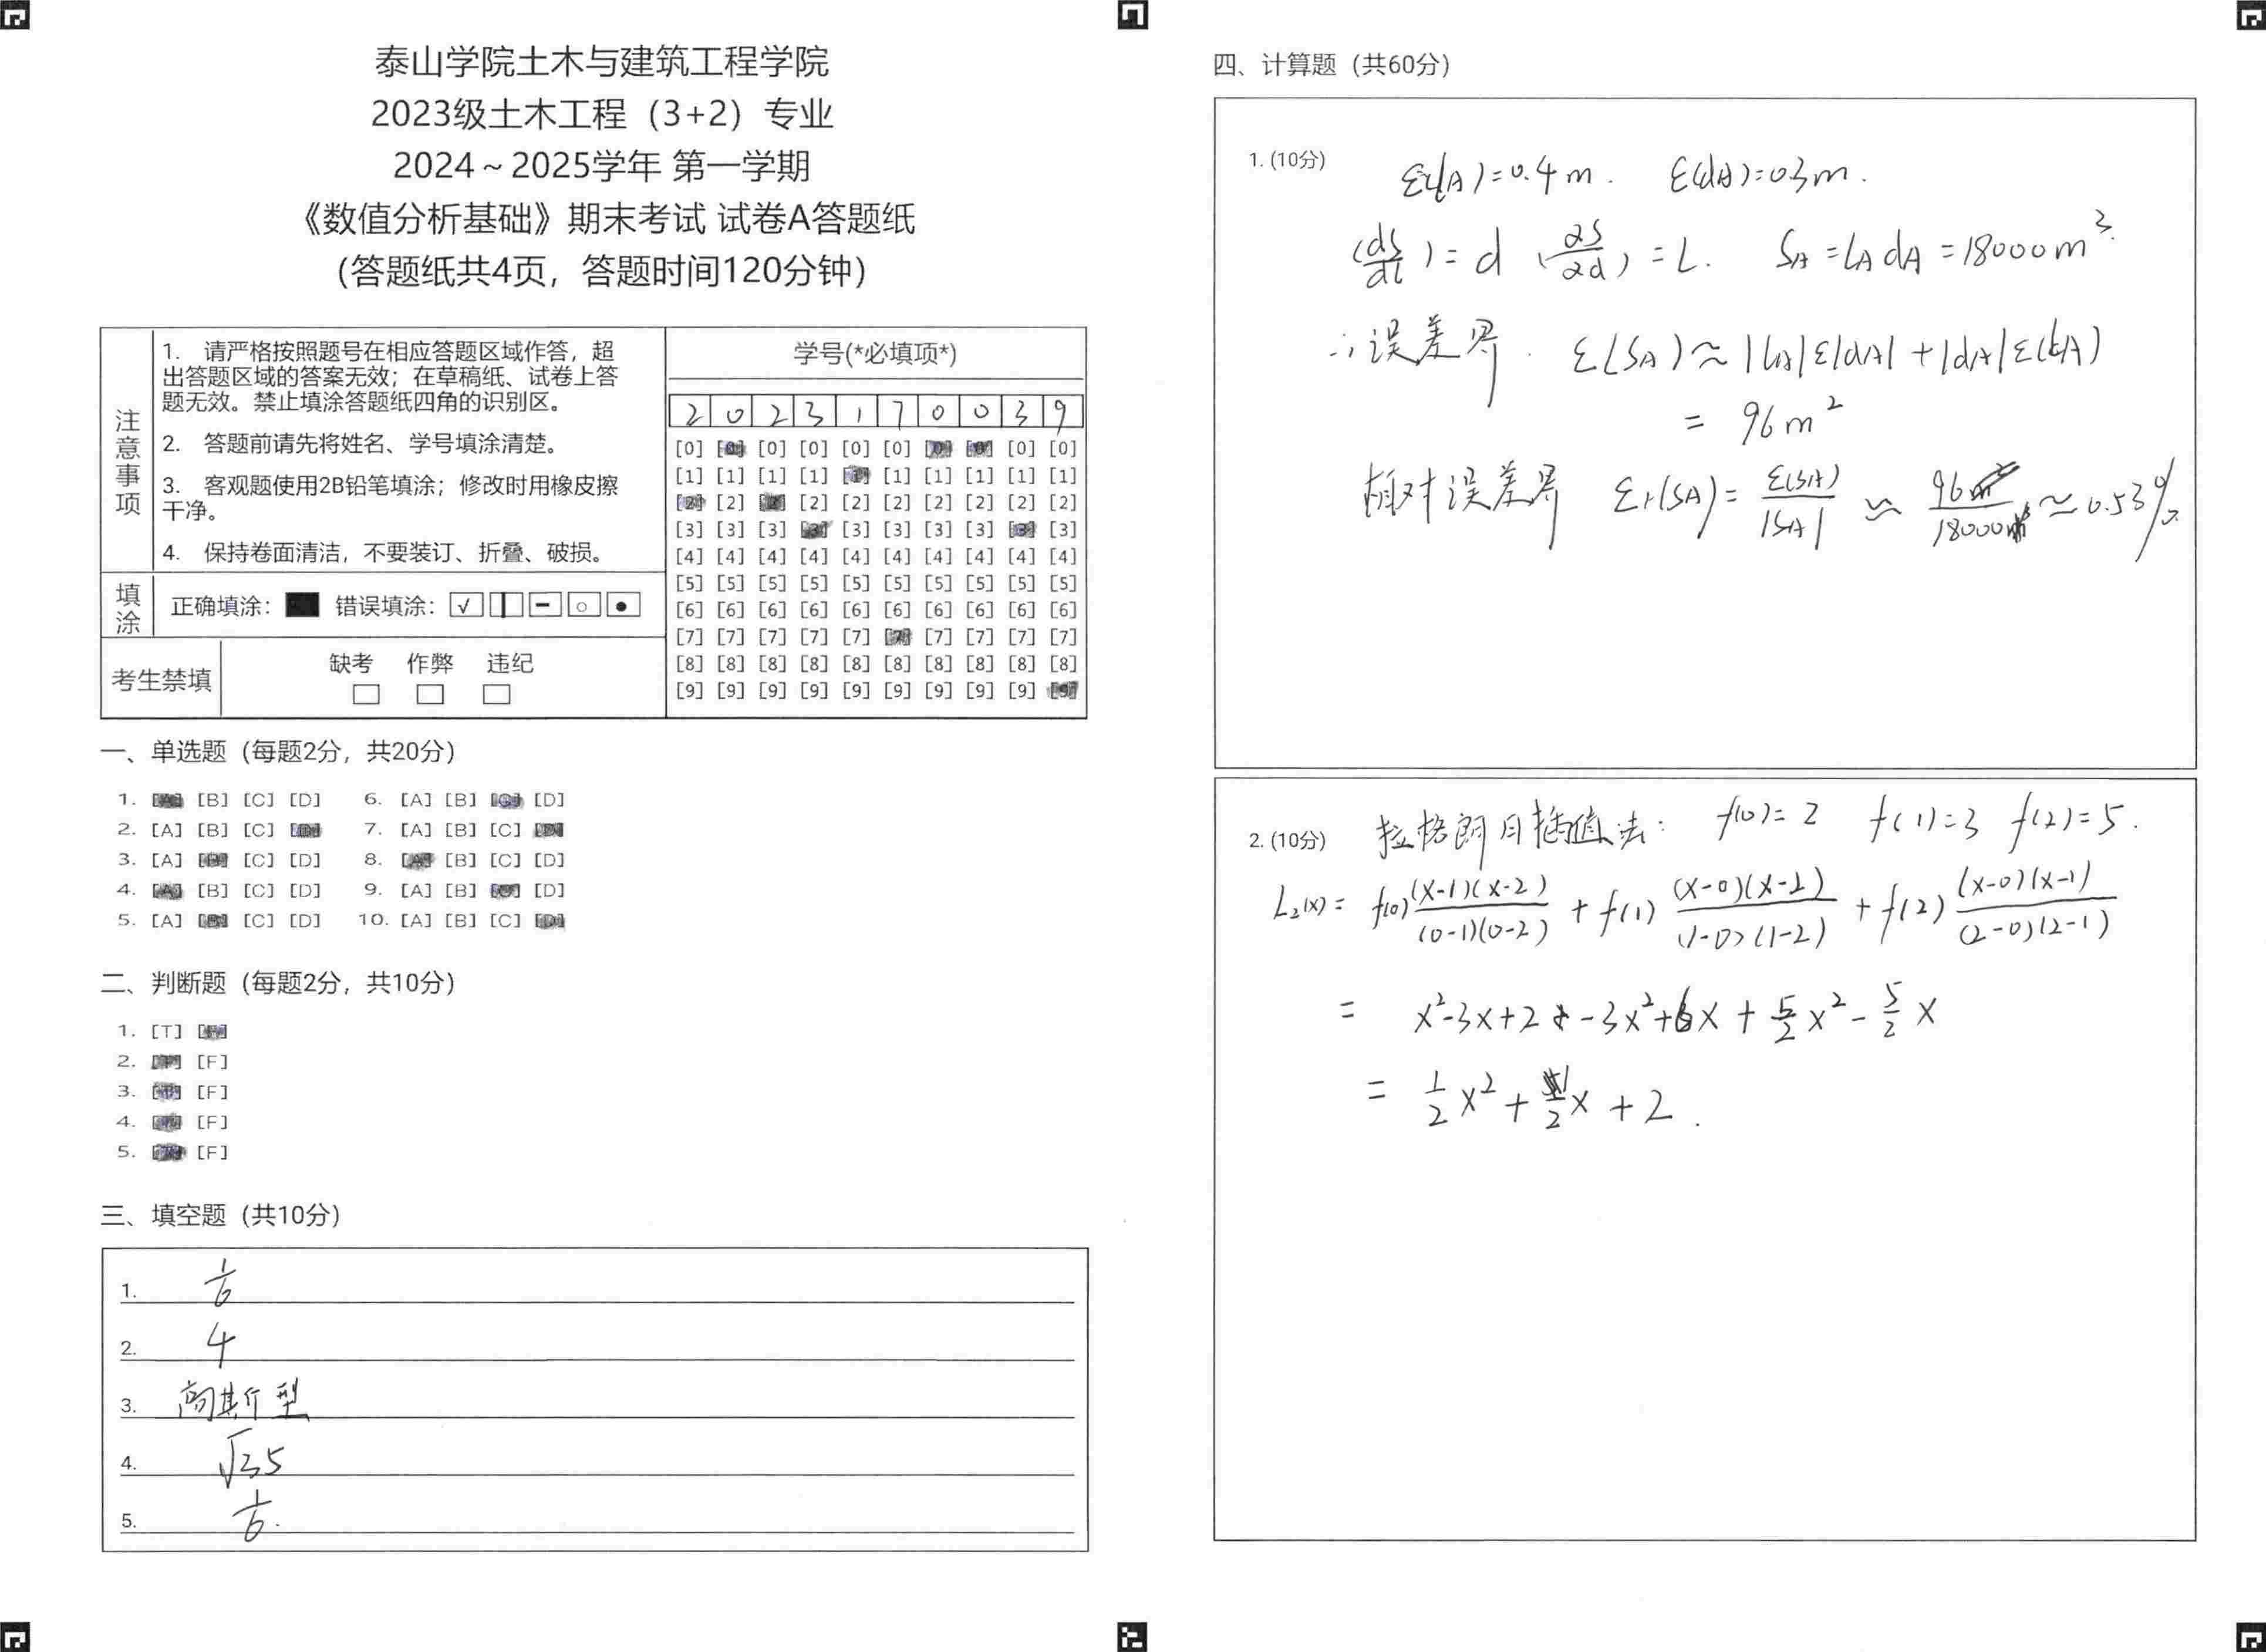 泰山学院土木与建筑工程学院
2023级土木工程（3+2）专业
2024～2025学年 第一学期
《数值分析基础》期末考试 试卷A答题纸
（答题纸共4页，答题时间120分钟）
注意事项
1. 请严格按照题号在相应答题区域作答，超
出答题区域的答案无效；在草稿纸、试卷上答
题无效。禁止填涂答题纸四角的识别区。
2. 答题前请先将姓名、学号填涂清楚。
3. 客观题使用2B铅笔填涂；修改时用橡皮擦
干净。
4. 保持卷面清洁，不要装订、折叠、破损。
填涂
正确填涂： 错误填涂：
考生禁填
缺考 作弊 违纪
学号(*必填项*)
2 0 2 3 1 7 0 0 3 9
[0] [0] [0] [0] [0] [0] [0] [0] [0] [0]
[1] [1] [1] [1] [1] [1] [1] [1] [1] [1]
[2] [2] [2] [2] [2] [2] [2] [2] [2] [2]
[3] [3] [3] [3] [3] [3] [3] [3] [3] [3]
[4] [4] [4] [4] [4] [4] [4] [4] [4] [4]
[5] [5] [5] [5] [5] [5] [5] [5] [5] [5]
[6] [6] [6] [6] [6] [6] [6] [6] [6] [6]
[7] [7] [7] [7] [7] [7] [7] [7] [7] [7]
[8] [8] [8] [8] [8] [8] [8] [8] [8] [8]
[9] [9] [9] [9] [9] [9] [9] [9] [9] [9]
一、单选题（每题2分，共20分）
1. [A] [B] [C] [D] 6. [A] [B] [C] [D]
2. [A] [B] [C] [D] 7. [A] [B] [C] [D]
3. [A] [B] [C] [D] 8. [A] [B] [C] [D]
4. [A] [B] [C] [D] 9. [A] [B] [C] [D]
5. [A] [B] [C] [D] 10. [A] [B] [C] [D]
二、判断题（每题2分，共10分）
1. [T] [F]
2. [T] [F]
3. [T] [F]
4. [T] [F]
5. [T] [F]
三、填空题（共10分）
1. 1/6
2. 4
3. 高斯型
4. √35
5. 1/6.
四、计算题（共60分）
1. (10分) ε(lA)=0.4m. ε(dA)=03m.
(ds/dl)=d (∂S/∂d)=L. SA=LAdA=18000m³.
∴误差界. ε(SA)≈|lA|ε|dA|+|dA|ε(lA)
= 96m²
相对误差界 εr(SA)=ε(SA)/|SA| ≈ 96/18000 ≈0.53%
2. (10分) 拉格朗日插值法： f(0)=2 f(1)=3 f(2)=5.
L₂(x)= f(0)(x-1)(x-2)/(0-1)(0-2) + f(1)(x-0)(x-2)/(1-0)(1-2) + f(2)(x-0)(x-1)/(2-0)(2-1)
= x²-3x+2-3x²+6x+5/2x²-5/2x
= 1/2x²+1/2x+2.